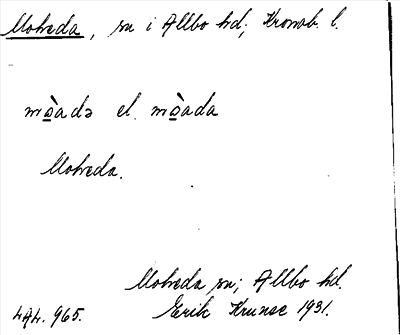 Moheda, sn i Allbo hd, Kronob. l.
mò̲adə el. mò̲ada
Moheda.
Moheda sn; Allbo hd.
LAL. 965. Erik Kruuse 1931.